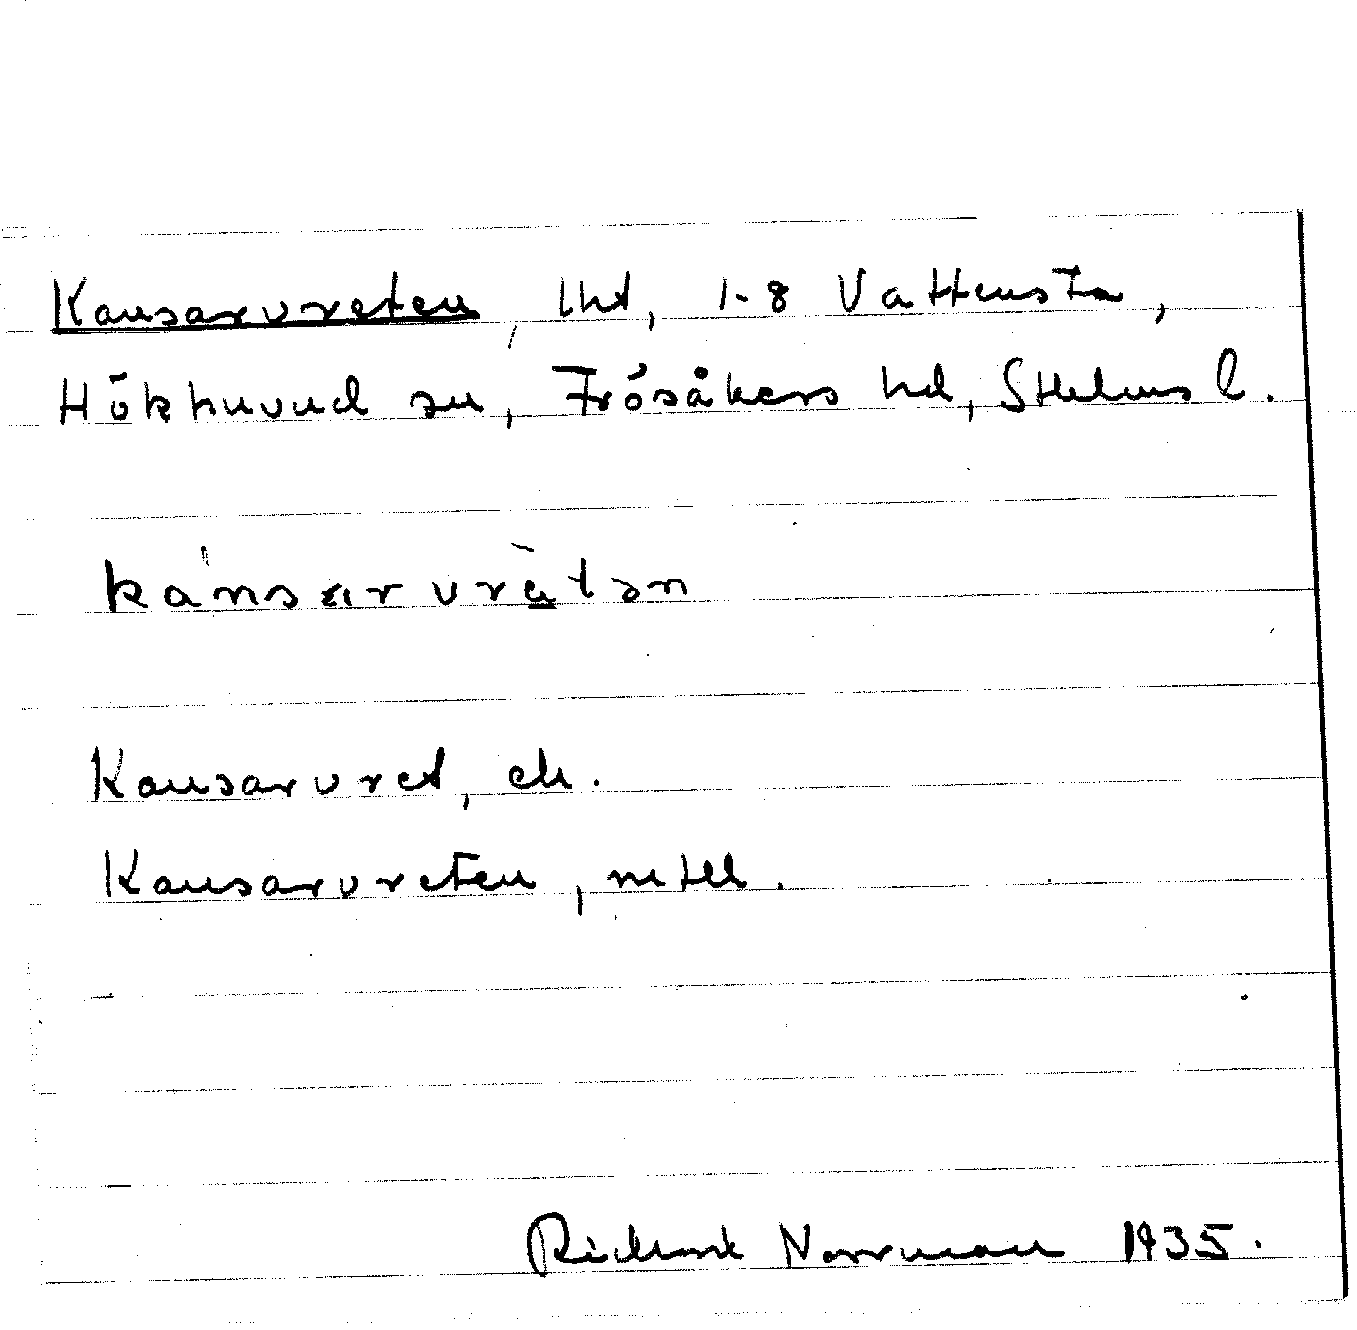 Kansarvreten, lht, 1-8 Vattensta,
Hökhuvud sn, Frösåkers hd, Sthlms l.
kánsarvrètən
Kansarvret, ek.
Kansarvreten, mtll.
Rickard Norrman 1935.